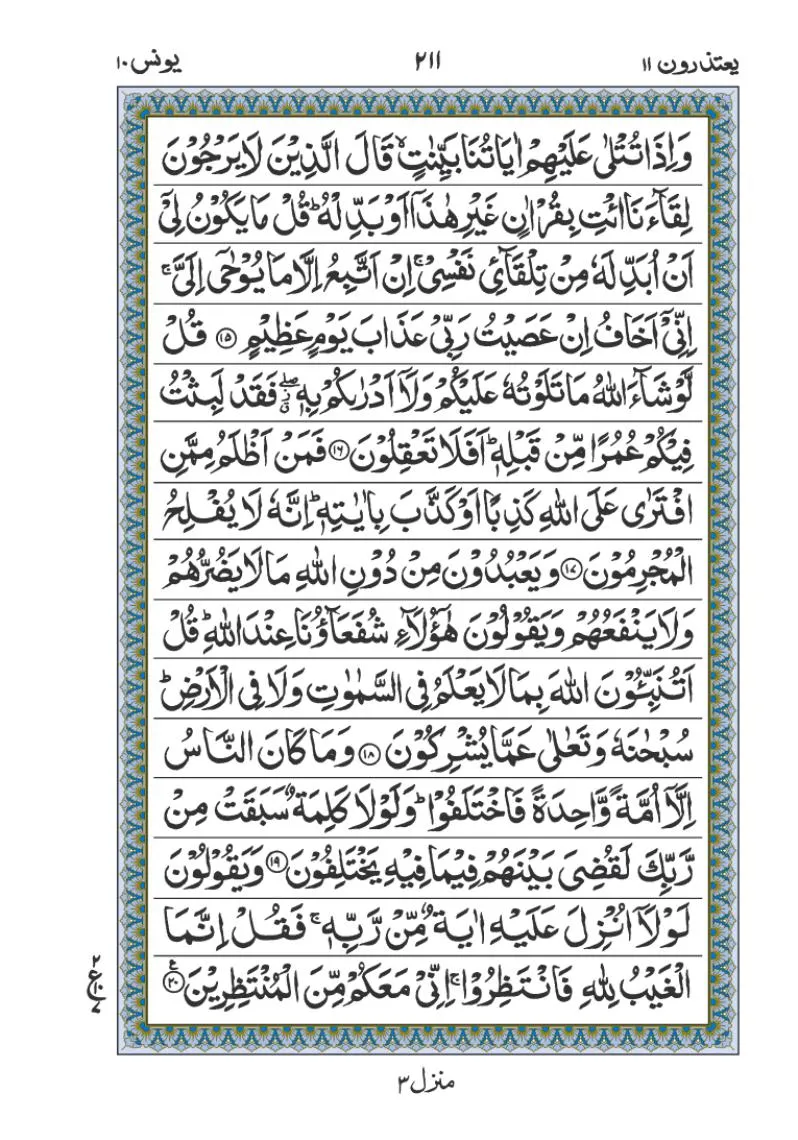 یعتذرون ۱۱
۲۱۱
یونس ۱۰
وَاِذَا تُتْلٰی عَلَیْهِمْ اٰیَاتُنَا بَیِّنٰتٍ ۙ قَالَ الَّذِیْنَ لَا یَرْجُوْنَ
لِقَآءَنَا ائْتِ بِقُرْاٰنٍ غَیْرِ هٰذَاۤ اَوْ بَدِّلْهُ ؕ قُلْ مَا یَكُوْنُ لِیْۤ
اَنْ اُبَدِّلَهٗ مِنْ تِلْقَآئِ نَفْسِیْ ۚ اِنْ اَتَّبِعُ اِلَّا مَا یُوْحٰۤی اِلَیَّ ۚ
اِنِّیْۤ اَخَافُ اِنْ عَصَیْتُ رَبِّیْ عَذَابَ یَوْمٍ عَظِیْمٍ ۝۱۵ قُلْ
لَّوْ شَآءَ اللّٰهُ مَا تَلَوْتُهٗ عَلَیْكُمْ وَلَاۤ اَدْرٰىكُمْ بِهٖ ۖؗ فَقَدْ لَبِثْتُ
فِیْكُمْ عُمُرًا مِّنْ قَبْلِهٖ ؕ اَفَلَا تَعْقِلُوْنَ ۝۱۶ فَمَنْ اَظْلَمُ مِمَّنِ
افْتَرٰی عَلَی اللّٰهِ كَذِبًا اَوْ كَذَّبَ بِاٰیٰتِهٖ ؕ اِنَّهٗ لَا یُفْلِحُ
الْمُجْرِمُوْنَ ۝۱۷ وَیَعْبُدُوْنَ مِنْ دُوْنِ اللّٰهِ مَا لَا یَضُرُّهُمْ
وَلَا یَنْفَعُهُمْ وَیَقُوْلُوْنَ هٰۤؤُلَآءِ شُفَعَآؤُنَا عِنْدَ اللّٰهِ ؕ قُلْ
اَتُنَبِّـُٔوْنَ اللّٰهَ بِمَا لَا یَعْلَمُ فِی السَّمٰوٰتِ وَلَا فِی الْاَرْضِ ؕ
سُبْحٰنَهٗ وَتَعٰلٰی عَمَّا یُشْرِكُوْنَ ۝۱۸ وَمَا كَانَ النَّاسُ
اِلَّاۤ اُمَّةً وَّاحِدَةً فَاخْتَلَفُوْا ؕ وَلَوْلَا كَلِمَةٌ سَبَقَتْ مِنْ
رَّبِّكَ لَقُضِیَ بَیْنَهُمْ فِیْمَا فِیْهِ یَخْتَلِفُوْنَ ۝۱۹ وَیَقُوْلُوْنَ
لَوْلَاۤ اُنْزِلَ عَلَیْهِ اٰیَةٌ مِّنْ رَّبِّهٖ ۚ فَقُلْ اِنَّمَا
الْغَیْبُ لِلّٰهِ فَانْتَظِرُوْا ۚ اِنِّیْ مَعَكُمْ مِّنَ الْمُنْتَظِرِیْنَ ۝۲۰
۲
ع
۱۰
۷
منزل ۳